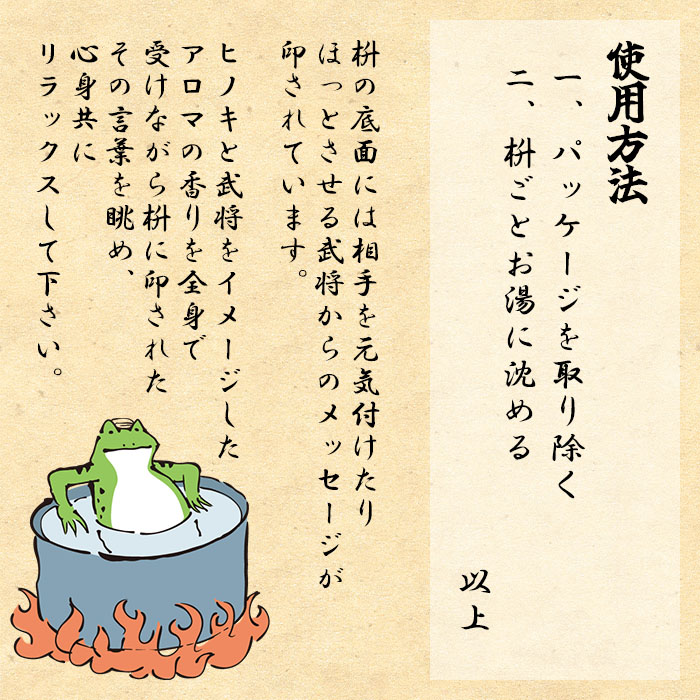 使用方法
一、パッケージを取り除く
二、枡ごとお湯に沈める
以上
枡の底面には相手を元気付けたり
ほっとさせる武将からのメッセージが
印されています。
ヒノキと武将をイメージした
アロマの香りを全身で
受けながら枡に印された
その言葉を眺め、
心身共に
リラックスして下さい。